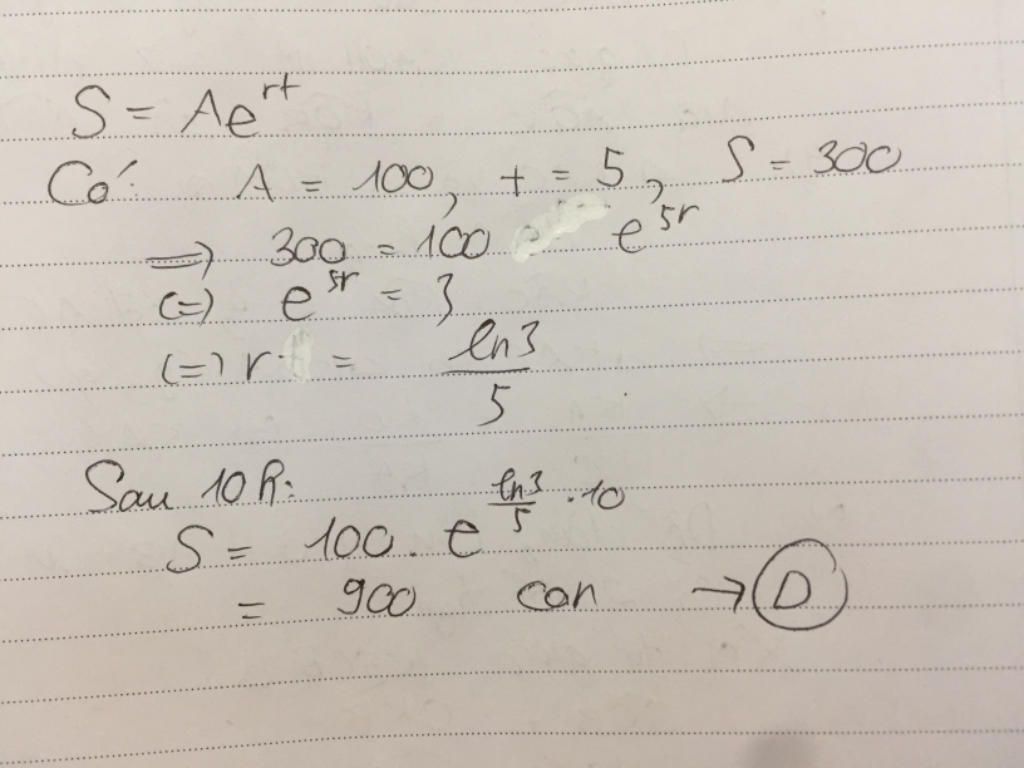 S = Ae^rt
Có: A = 100, t = 5, S = 300
=> 300 = 100 e^5r
(=) e^5r = 3
(=) r = ln3/5
Sau 10h:
S = 100. e^(ln3/5 .10)
= 900 con → D